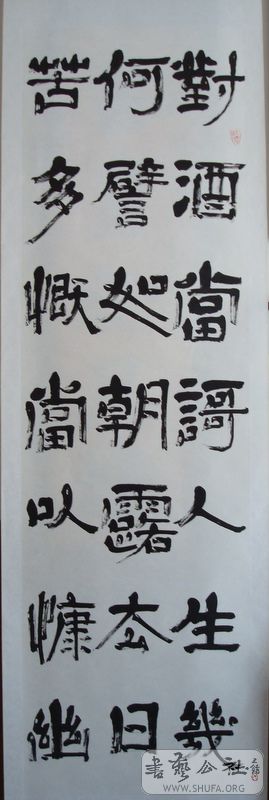 對酒當謌人生幾
何譬如朝露去日
苦多慨當以慷幽
書藝公社
WWW.SHUFA.ORG